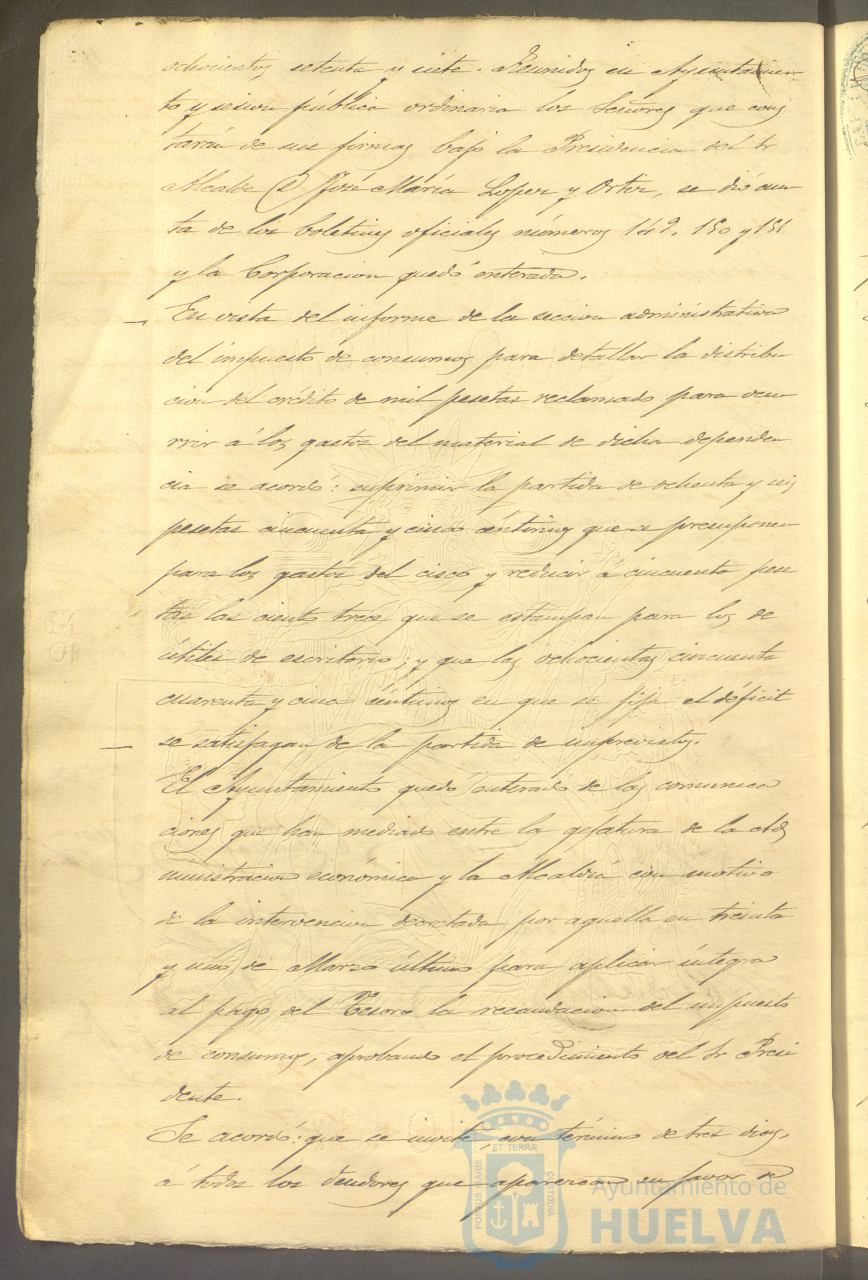 ochocientos setenta y siete. Reunidos en Ayuntamien
to y sesion pública ordinaria los Señores que cons
tarán de sus firmas bajo la Presidencia del Sr
Alcalde D José María Lopez y Ortiz, se dió cuen
ta de los boletines oficiales números 149, 150 y 151
y la Corporacion quedó enterada.
En vista del informe de la seccion administrativa
del impuesto de consumos para detallar la distribu
cion del crédito de mil pesetas reclamado para ocu
rrir á los gastos del material de dicha dependen
cia se acordó: suprimir la partida de ochenta y seis
pesetas cincuenta y cinco céntimos que se presuponen
para los gastos del cisco y reducir á cincuenta pese
tas las ciento trece que se estampan para los de
útiles de escritorio; y que las ochocientas cincuenta
cuarenta y cinco céntimos en que se fija el déficit
se satisfagan de la partida de imprevistos.
El Ayuntamiento quedó enterado de las comunica
ciones que han mediado entre la gefatura de la Ad
ministracion económica y la Alcaldía con motivo
de la intervencion decretada por aquella en treinta
y uno de Marzo último para aplicar íntegra
al pago del Tesoro la recaudacion del impuesto
de consumos, aprobando el procedimiento del Sr Presi
dente.
Se acordó: que se invite, con término de tres dias,
á todos los deudores que aparezcan en favor de
PORTUS MARIS
ET TERRÆ
CUSTODIA
Ayuntamiento de
HUELVA